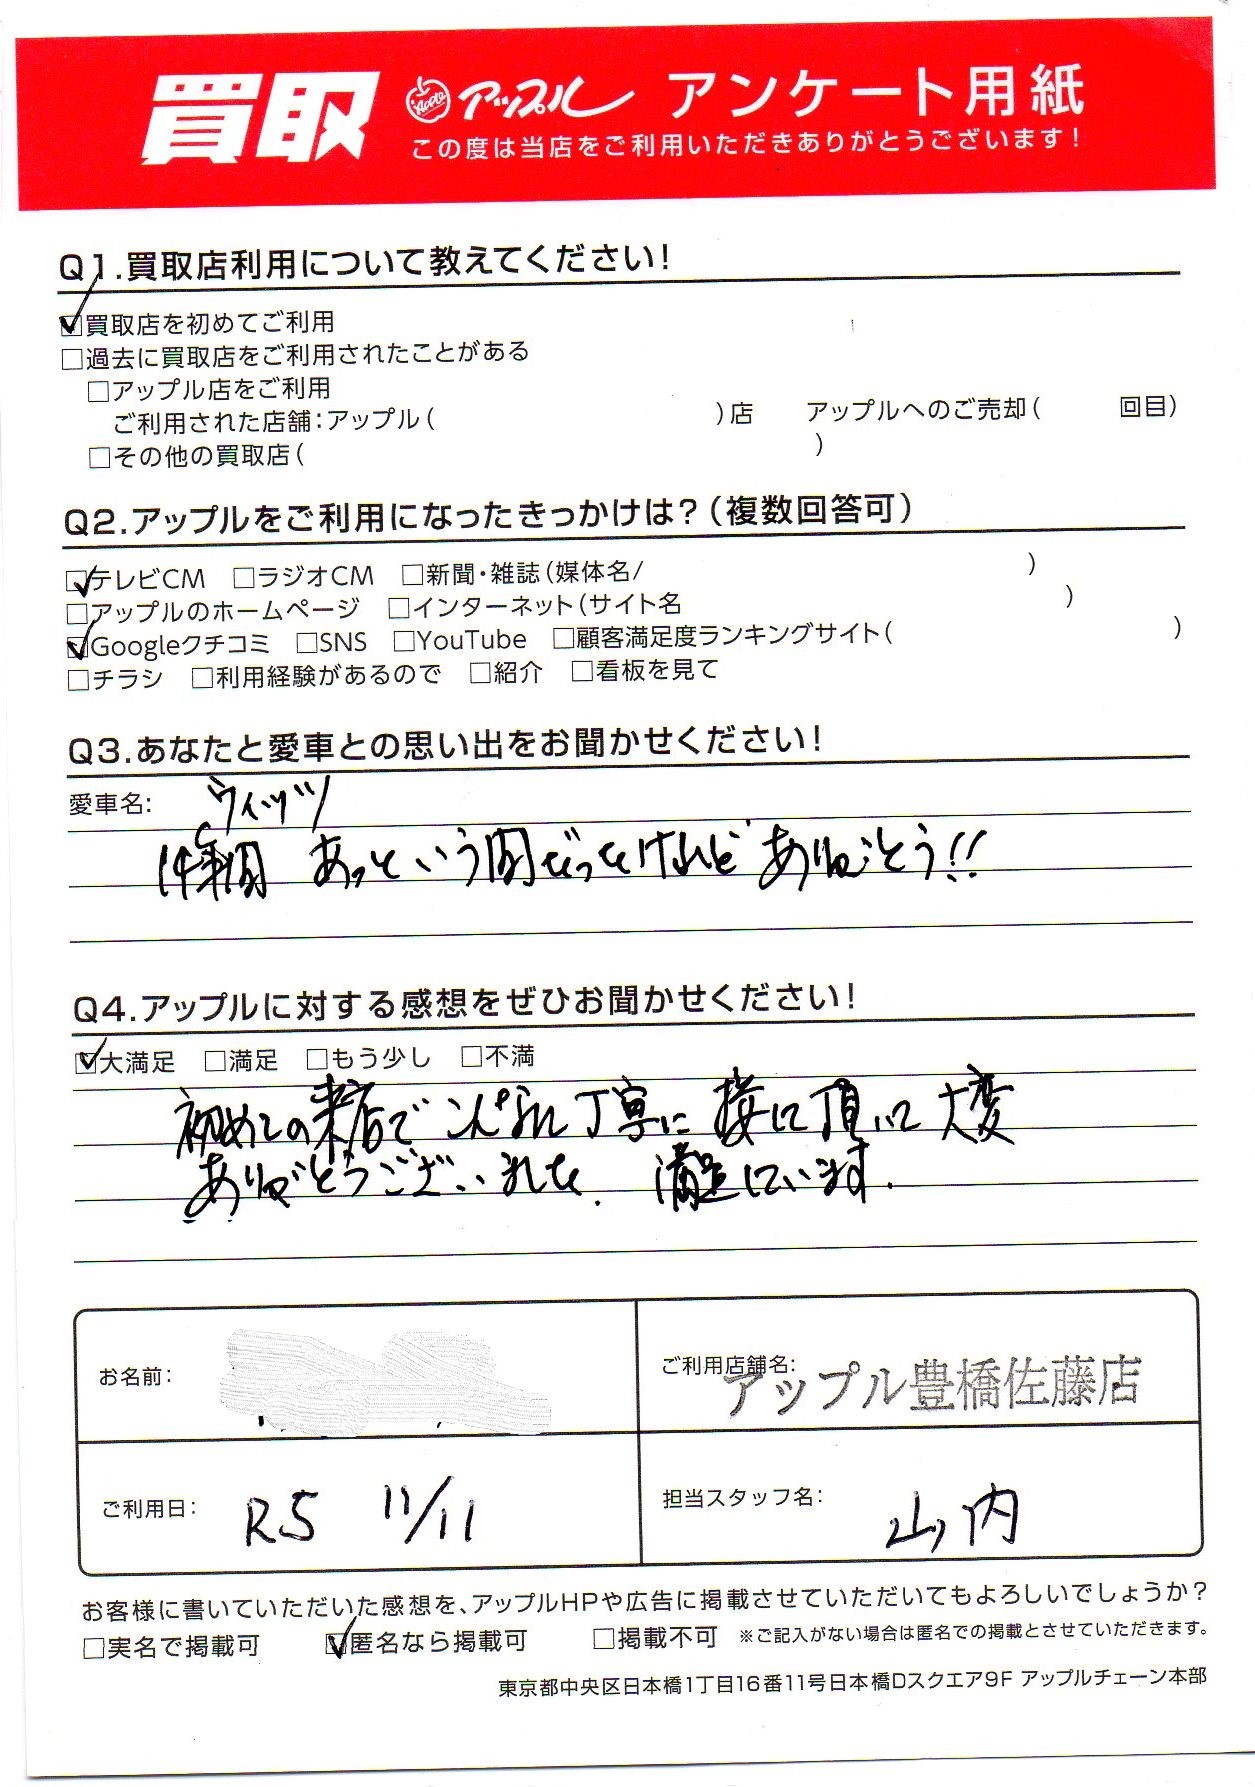 買取 Apple アップル アンケート用紙
この度は当店をご利用いただきありがとうございます!
Q1.買取店利用について教えてください!
☑買取店を初めてご利用
□過去に買取店をご利用されたことがある
□アップル店をご利用
ご利用された店舗:アップル( )店 アップルへのご売却( 回目)
□その他の買取店( )
Q2.アップルをご利用になったきっかけは?(複数回答可)
☑テレビCM □ラジオCM □新聞・雑誌(媒体名/ )
□アップルのホームページ □インターネット(サイト名 )
☑Googleクチコミ □SNS □YouTube □顧客満足度ランキングサイト( )
□チラシ □利用経験があるので □紹介 □看板を見て
Q3.あなたと愛車との思い出をお聞かせください!
愛車名: ウィッツ
14年間 あっという間だったけれど ありがとう!!
Q4.アップルに対する感想をぜひお聞かせください!
☑大満足 □満足 □もう少し □不満
初めての来店でこんなに丁寧に接して頂いて大変
ありがとうございました. 満足しています.
お名前:
ご利用店舗名:
アップル豊橋佐藤店
ご利用日: R5 11/11
担当スタッフ名: 山内
お客様に書いていただいた感想を、アップルHPや広告に掲載させていただいてもよろしいでしょうか?
□実名で掲載可 ☑匿名なら掲載可 □掲載不可 ※ご記入がない場合は匿名での掲載とさせていただきます。
東京都中央区日本橋1丁目16番11号日本橋Dスクエア9F アップルチェーン本部